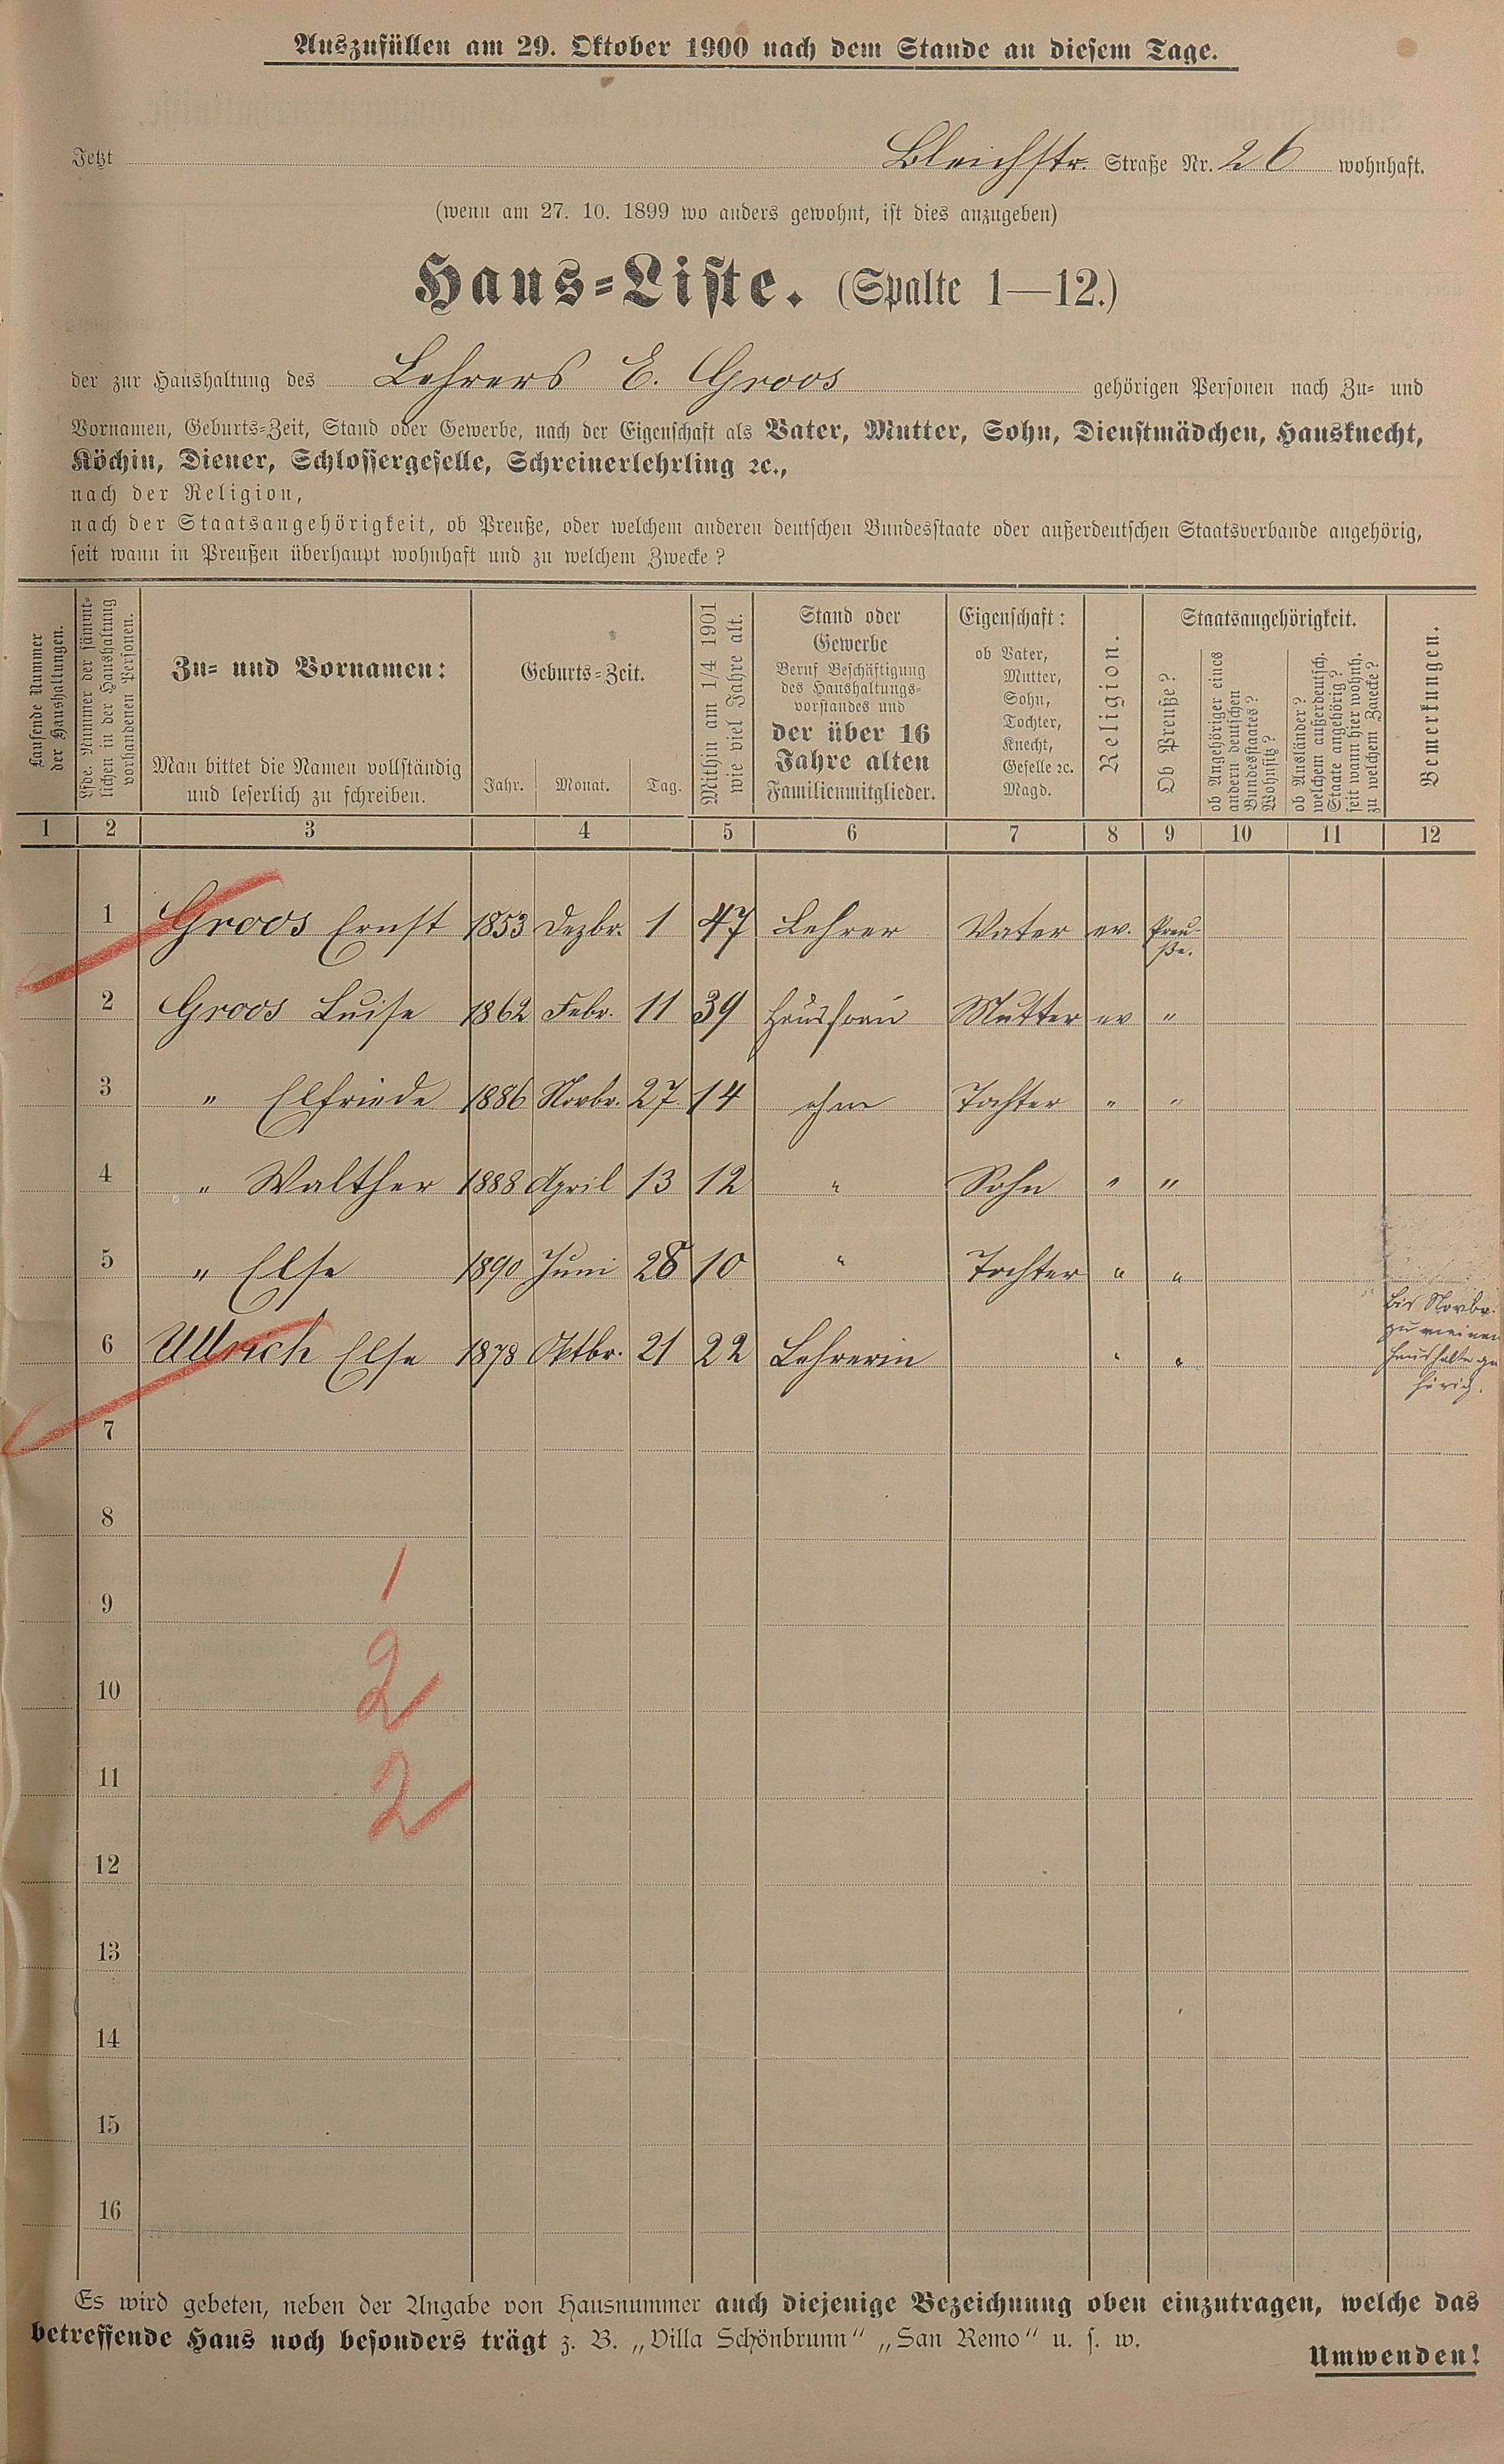 Auszufüllen am 29. Oktober 1900 nach dem Stande an diesem Tage.
Jetzt Bleichstr. Straße Nr. 26 wohnhaft.
(wenn am 27. 10. 1899 wo anders gewohnt, ist dies anzugeben)
Haus-Liste. (Spalte 1—12.)
der zur Haushaltung des Lehrers E. Groos gehörigen Personen nach Zu- und
Vornamen, Geburts-Zeit, Stand oder Gewerbe, nach der Eigenschaft als Vater, Mutter, Sohn, Dienstmädchen, Hausknecht,
Köchin, Diener, Schlossergeselle, Schreinerlehrling ꝛc.,
nach der Religion,
nach der Staatsangehörigkeit, ob Preuße, oder welchem anderen deutschen Bundesstaate oder außerdeutschen Staatsverbande angehörig,
seit wann in Preußen überhaupt wohnhaft und zu welchem Zwecke?
Laufende Nummer
der Haushaltungen.
Lfde. Nummer der sämmt-
lichen in der Haushaltung
vorhandenen Personen.
Zu- und Vornamen:
Man bittet die Namen vollständig
und leserlich zu schreiben.
Geburts-Zeit.
Jahr. Monat. Tag.
Mithin am 1/4 1901
wie viel Jahre alt.
Stand oder
Gewerbe
Beruf Beschäftigung
des Haushaltungs-
vorstandes und
der über 16
Jahre alten
Familienmitglieder.
Eigenschaft:
ob Vater,
Mutter,
Sohn,
Tochter,
Knecht,
Geselle ꝛc.
Magd.
Religion.
Staatsangehörigkeit.
Ob Preuße?
ob Angehöriger eines
andern deutschen
Bundesstaates?
Wohnsitz?
ob Ausländer?
welchem außerdeutsch.
Staate angehörig?
seit wann hier wohnh.
zu welchem Zwecke?
Bemerkungen.
1 2 3 4 5 6 7 8 9 10 11 12
1 Groos Ernst 1853 Dezbr. 1 47 Lehrer Vater ev. Preu-
ße.
2 Groos Luise 1862 Febr. 11 39 Hausfrau Mutter ev "
3 " Elfriede 1886 Novbr. 27. 14 ohne Tochter " "
4 " Walther 1888 April 13 12 " Sohn " "
5 " Else 1890 Juni 28 10 " Tochter " "
6 Ullrich Else 1878 Oktbr. 21 22 Lehrerin " "
bis Novbr.
zu meinem
Haushalte ge
hörig.
7
8
1
9
2
10
2
11
12
13
14
15
16
Es wird gebeten, neben der Angabe von Hausnummer auch diejenige Bezeichnung oben einzutragen, welche das
betreffende Haus noch besonders trägt z. B. „Villa Schönbrunn“ „San Remo“ u. s. w.
Umwenden!